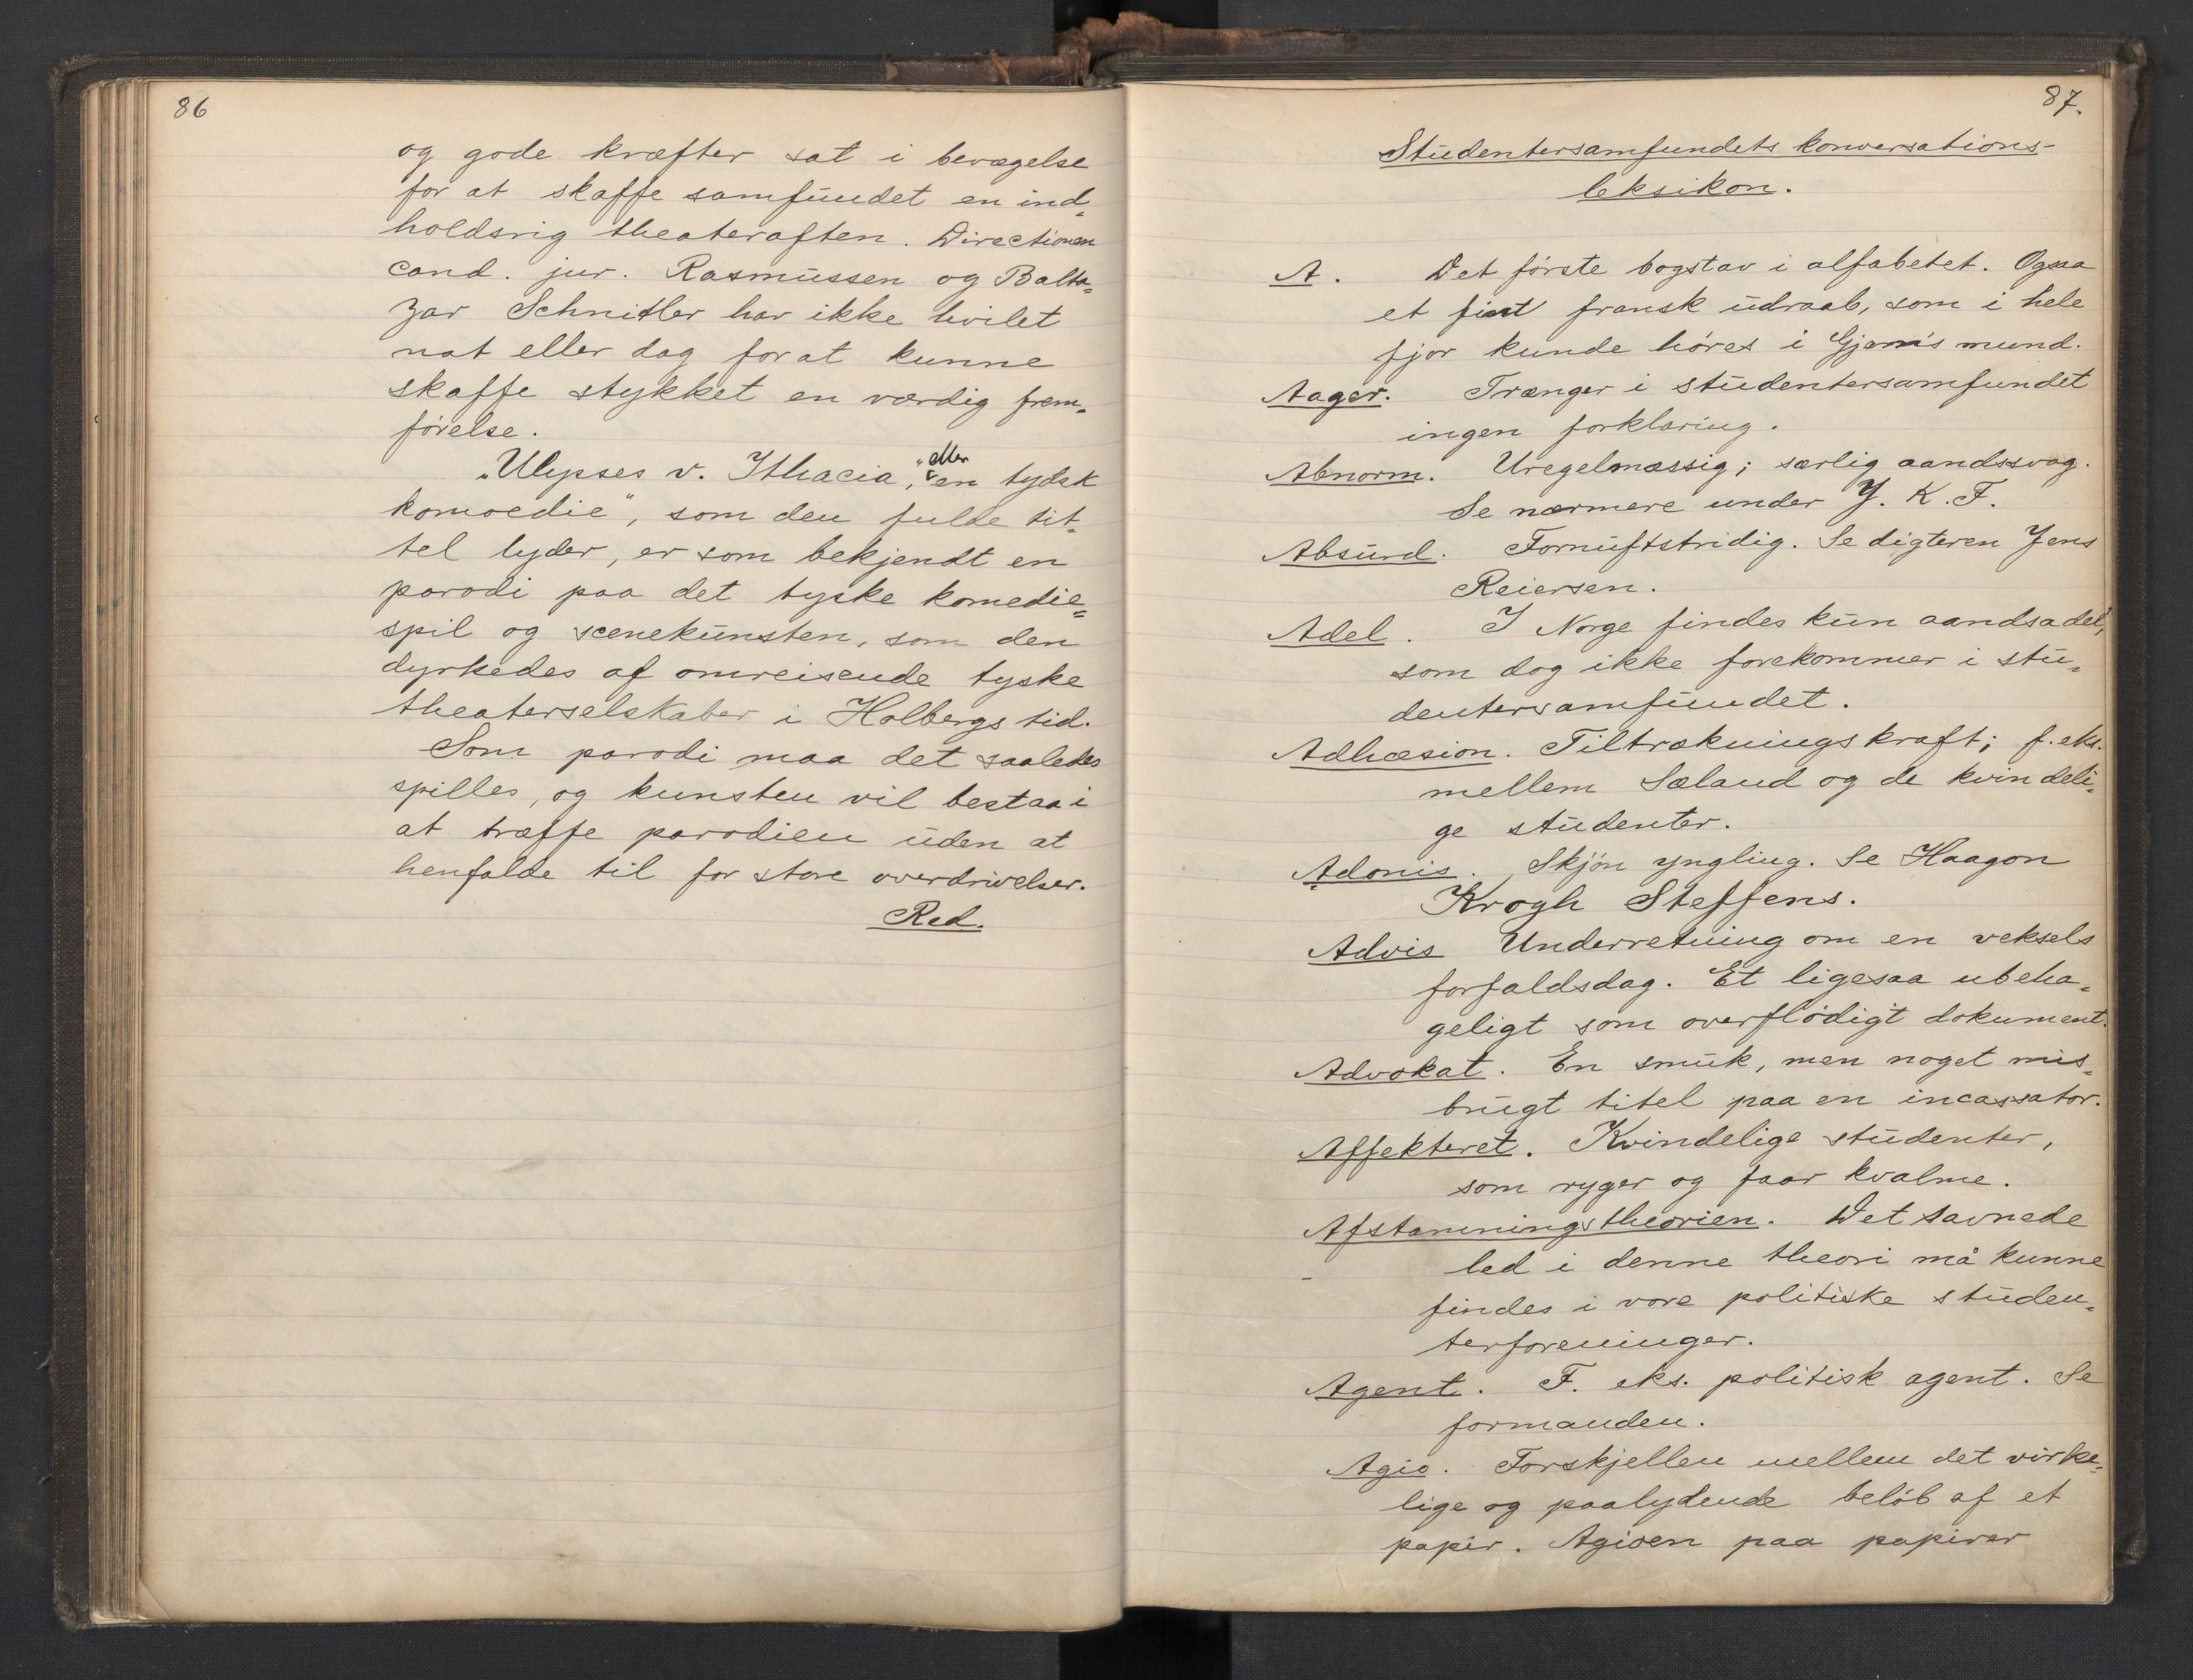 86
og gode kræfter sat i bevægelse
for at skaffe samfundet en ind=
holdsrig theateraften. Directionen
cand. jur. Rasmussen og Balta=
zar Schnitler har ikke hvilet
nat eller dag forat kunne
skaffe stykket en værdig frem=
førelse.
„Ulysses v. Ithacia," eller „en tydsk
komoedie", som den fulde tit=
tel lyder, er som bekjendt en
parodi paa det tyske komedie=
spil og scenekunsten, som den
dyrkedes af omreisende tyske
theaterselskaber i Holbergs tid.
Som parodi maa det saaledes
spilles, og kunsten vil bestaa i
at træffe parodien uden at
henfalde til for store overdrivelser.
Red.
87.
Studentersamfundets konversations-
leksikon.
A. Det første bogstav i alfabetet. Ogsaa
et fint fransk udraab, som i hele
fjor kunde høres i Gjem's mund.
Aager. Trænger i studentersamfundet
ingen forklaring.
Abnorm. Uregelmæssig; særlig aandssvag.
Se nærmere under J. K. F.
Absurd. Fornuftstridig. Se digteren Jens
Reiersen.
Adel. I Norge findes kun aandsadel,
som dog ikke forekommer i stu=
dentersamfundet.
Adhæsion. Tiltrækningskraft; f. eks.
mellem Sæland og de kvindeli=
ge studenter.
Adonis. Skjøn yngling. Se Haagon
Krogh Steffens.
Advis Underretning om en veksels
forfaldsdag. Et ligesaa ubeha=
geligt som overflødigt dokument.
Advokat. En smuk, men noget mis=
brugt titel paa en incassator.
Affekteret. Kvindelige studenter,
som ryger og faar kvalme.
Afstamningstheorien. Det savnede
led i denne theori må kunne
findes i vore politiske studen=
terforeninger.
Agent. F. eks. politisk agent. Se
formanden.
Agio. Forskjellen mellem det virke=
lige og paalydende beløb af et
papir. Agioen paa papirer